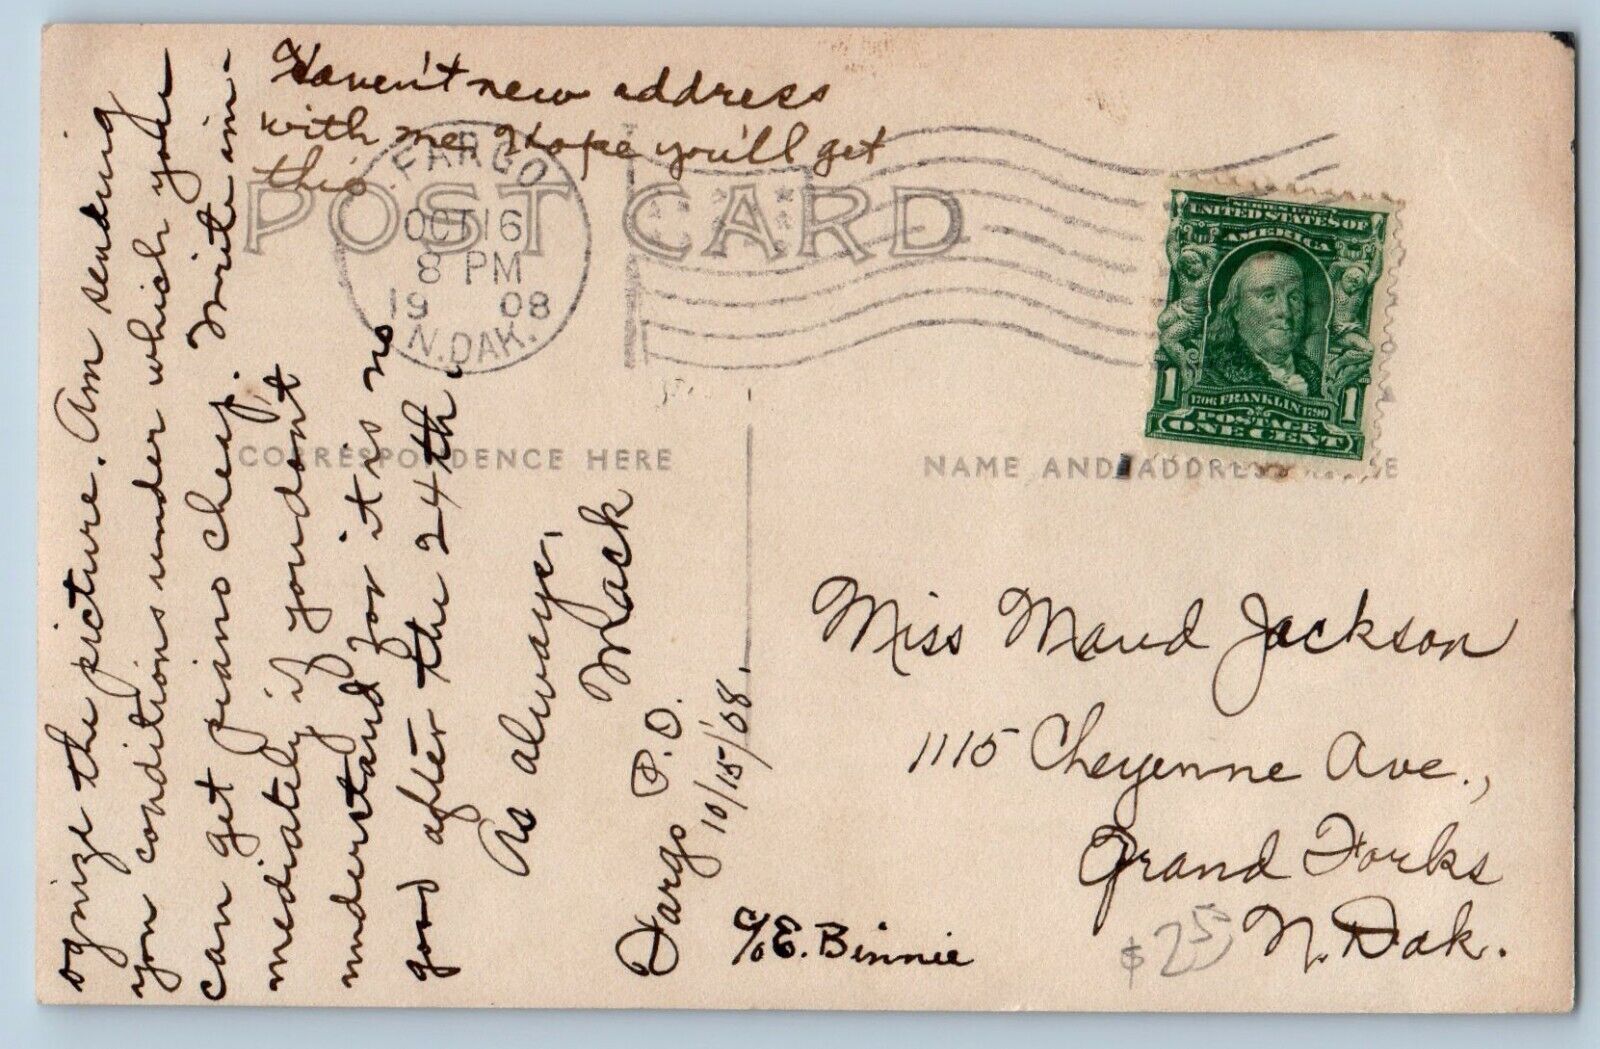 Haven't new address
with me. Hope you'll get
this.
POST CARD
FARGO
OCT 16
8 PM
19 08
N. DAK.
UNITED STATES OF
AMERICA
1 1
1706 FRANKLIN 1790
POSTAGE
ONE CENT
CORRESPONDENCE HERE
NAME AND ADDRESS HERE
ognize the picture. Am sending
you conditions under which you
can get piano cheap. Write im-
mediately if you dont
understand for it is no
good after the 24th.
As always,
Mack
Fargo P.O.
10/15/08.
Miss Maud Jackson
1115 Cheyenne Ave.,
Grand Forks
N. Dak.
c/o E. Binnie
$25